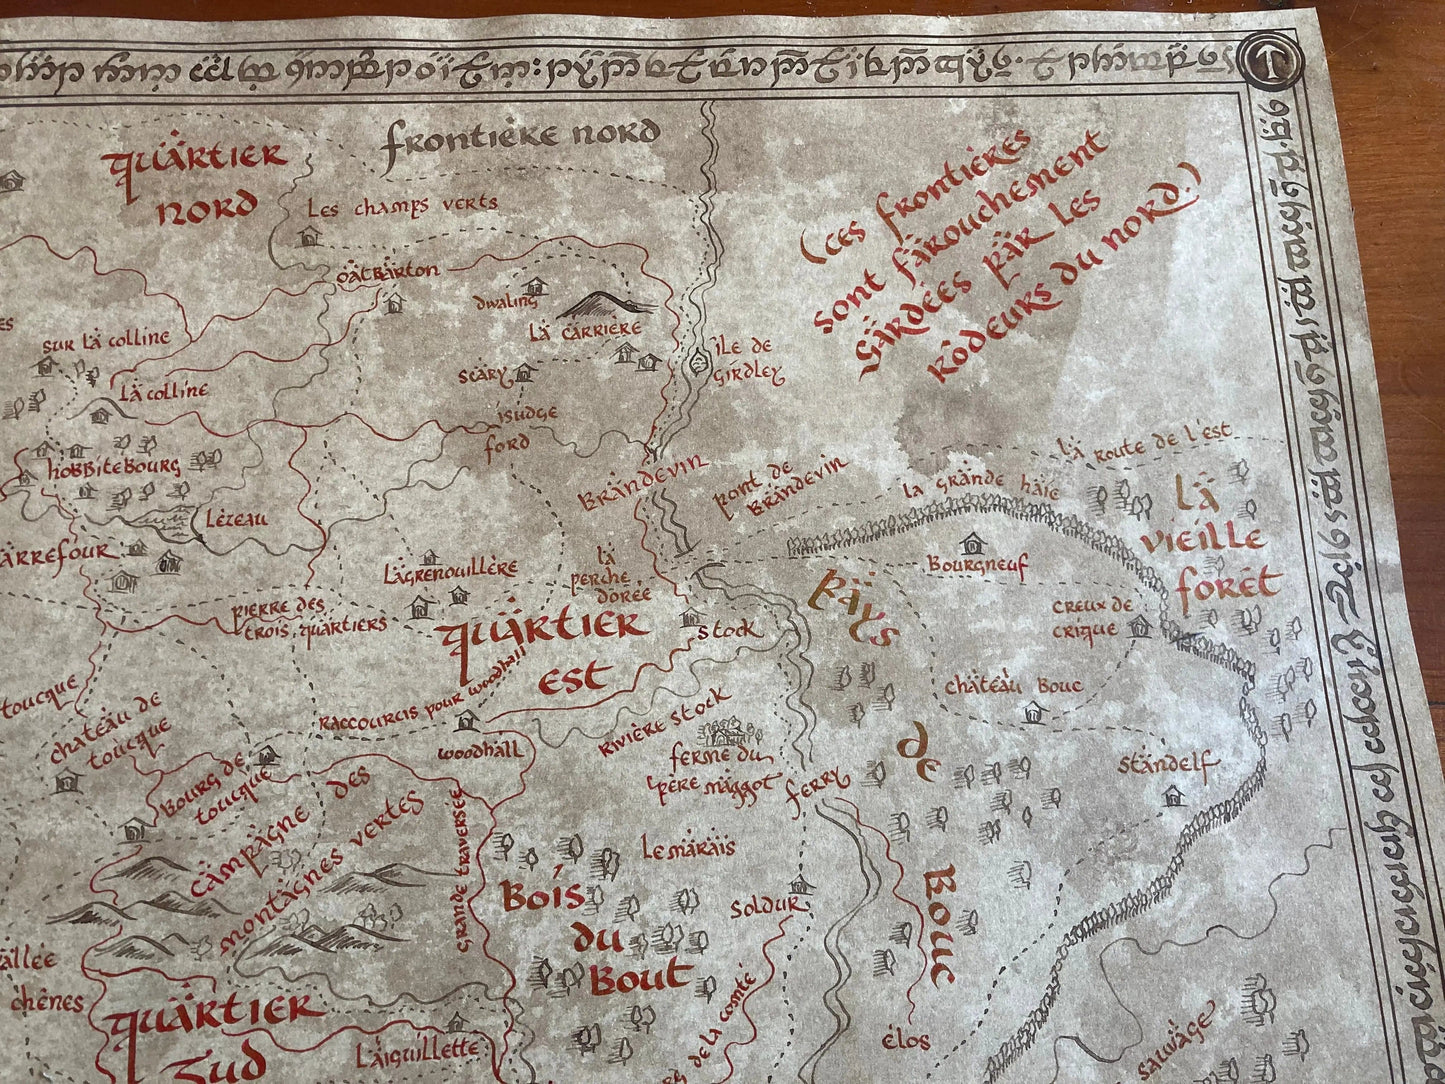 Quartier
Nord
Frontière Nord
Les champs verts
(Ces frontières
sont farouchement
gardées par les
rôdeurs du nord.)
Oatbarton
Dwaling
La carrière
Île de
Girdley
Sur la colline
Scary
La colline
Isudge
Ford
Hobbitebourg
Brandevin
Pont de
Brandevin
La Route de l'Est
La grande haie
La
Vieille
Forêt
Lézeau
Bourgneuf
Lagrenouillère
La
perche
dorée
Creux de
crique
Pierre des
trois quartiers
Quartier
Est
Stock
Pays
de
Bouc
Château Bouc
Raccourcis pour Woodhall
Woodhall
Rivière Stock
Ferme du
Père Maggot
Ferry
Standelf
Château de
Toucque
Bourg de
Toucque
Campagne des
montagnes vertes
Grande traversée
Lemarais
Bois
du
Bout
Soldur
chênes
Quartier
Sud
Laiguillette
de la comté
Élos
Sauvage